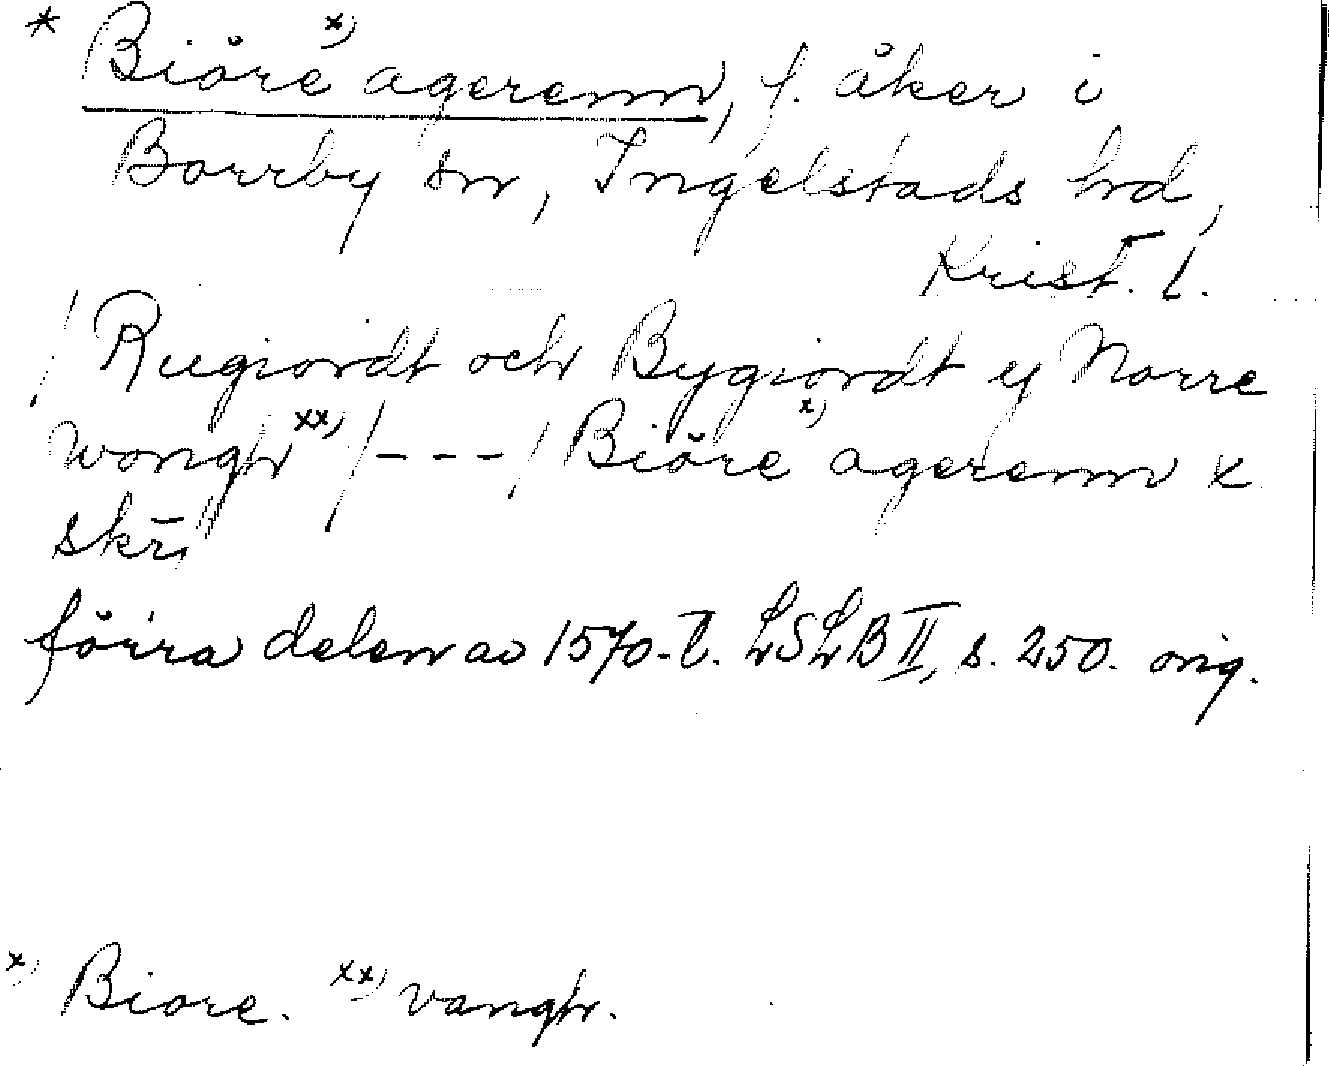 * Biöre x) agerenn, f. åker i
Borrby sn, Ingelstads hd,
Krist. l.
/ Rugiordt och Bygiordt ij Norre
wongh xx) / - - - / Biöre x) agerenn x
förra delen av 1570-t. LSLB II, s. 250. orig.
x) Biore. xx) vangh.